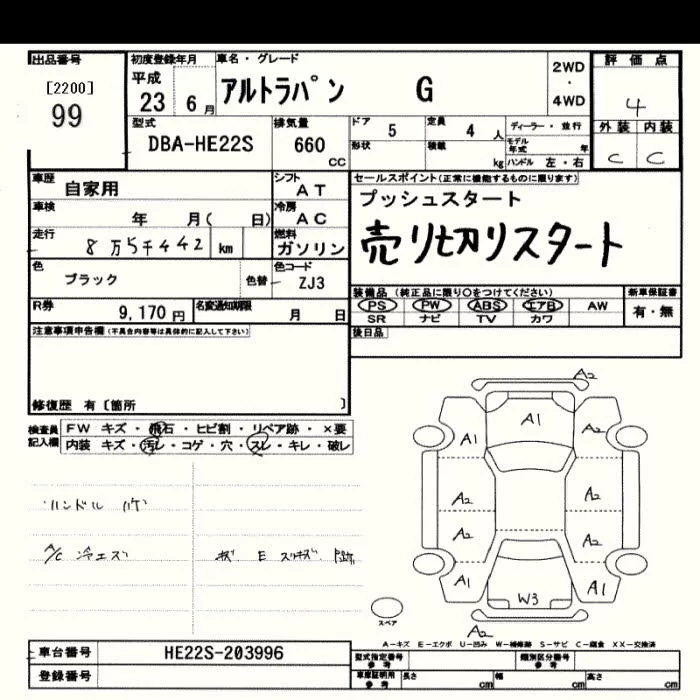 出品番号
[2200]
99
初度登録年月
平成
23 6月
車名・グレード
アルトラパン G
2WD
・
4WD
評価点
4
外装 内装
C C
型式
DBA-HE22S
排気量
660
CC
ドア 5
定員 4 人
形状
積載 kg
ディーラー・並行
モデル年式 年
ハンドル 左・右
車歴 自家用
シフト AT
車検 年 月( 日)
冷房 AC
走行 8万5千442 km
燃料 ガソリン
色 ブラック
色替
色コード ZJ3
R券 9,170円
名変通知期限 月 日
セールスポイント(正常に機能するものに限ります)
プッシュスタート
売り切りスタート
装備品 (純正品に限り○をつけてください)
PS PW ABS エアB AW
SR ナビ TV カワ
新車保証書
有・無
後日品
注意事項申告欄(不具合内容等は具体的に記入して下さい)
修復歴 有〔箇所 〕
検査員記入欄
FW キズ・飛石・ヒビ割・リペア跡・×要
内装 キズ・汚レ・コゲ・穴・スレ・キレ・破レ
ハンドル ハゲ
A/C 冷エズ
A2
A1
A1 A2
A2 A2
A2 A2
A1 A1
W3
A2
スペア
A-キズ E-エクボ U-凹み W-補修跡 S-サビ C-腐食 XX-交換済
車台番号 HE22S-203996
登録番号
型式指定番号 参考
類別区分番号 参考
車庫証明用 参考
長さ cm 幅 cm 高さ cm